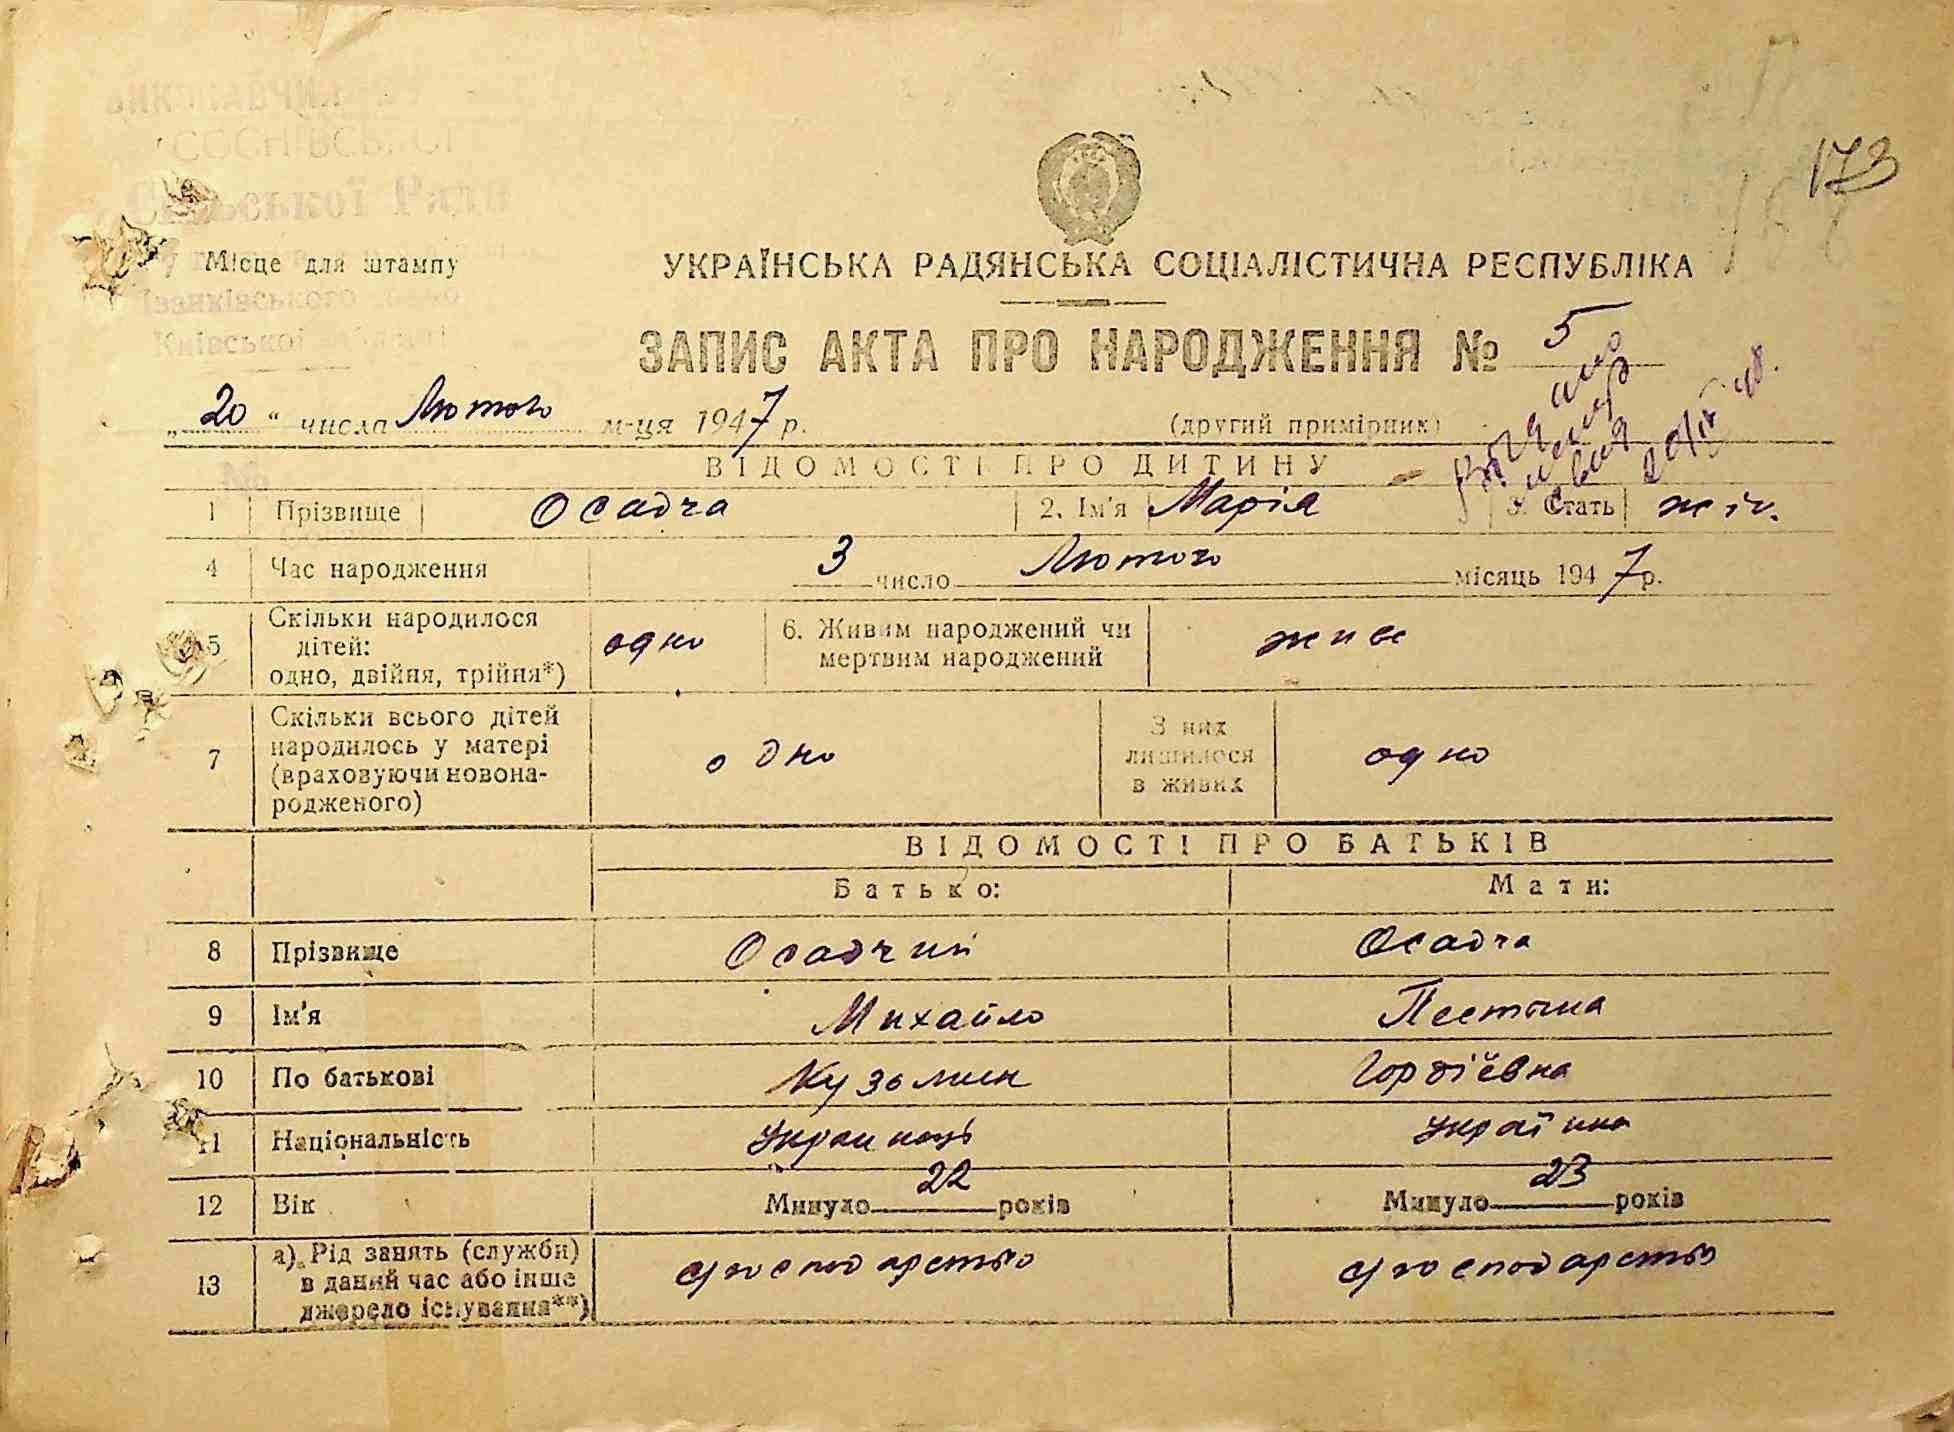 173
СОСНІВСЬКОЇ
Сільської Ради
Місце для штампу
Іванківського
Київської області
УКРАЇНСЬКА РАДЯНСЬКА СОЦІАЛІСТИЧНА РЕСПУБЛІКА
ЗАПИС АКТА ПРО НАРОДЖЕННЯ № 5
„20“ числа Лютого м-ця 1947 р. (другий примірник)
ВІДОМОСТІ ПРО ДИТИНУ
1 Прізвище Осадча 2. Ім'я Марія 3. Стать жін.
4 Час народження 3 число Лютого місяць 1947 р.
5 Скільки народилося дітей: одно, двійня, трійня*) одно 6. Живим народжений чи мертвим народжений живе
7 Скільки всього дітей народилось у матері (враховуючи новонародженого) одно З них лишилося в живих одно
ВІДОМОСТІ ПРО БАТЬКІВ
Батько: Мати:
8 Прізвище Осадчий Осадча
9 Ім'я Михайло
10 По батькові Кузьмич Гордіёвна
11 Національність Украинець Українка
12 Вік Минуло 22 років Минуло 23 років
13 а) Рід занять (служби) в даний час або інше джерело існування**)